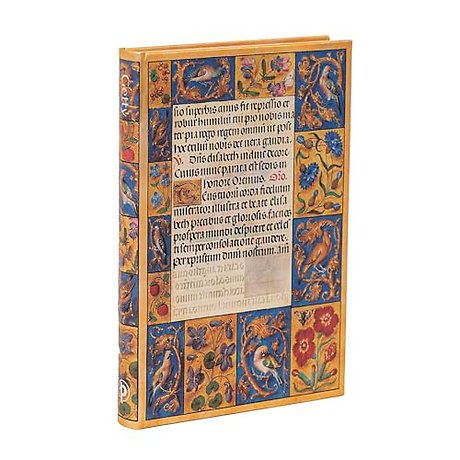 Getty
sio superbis cuius fit repressio et
robur humiliū tui pro nobis ma
ter pia rego regem omniū ut post
hoc exiliū nobis det vera gaudia
V. Diis elisabeth induit decore
Cuius nunc parata est sedis in
honore Oremus. Oro.
tuorū corda fidelium
miserator illustra et beate elisa
beth precibus et gloriosis fac nos
prospera mundi despicere et celes
ti semper consolatione gaudere.
per xpristum dnm nostrum. am